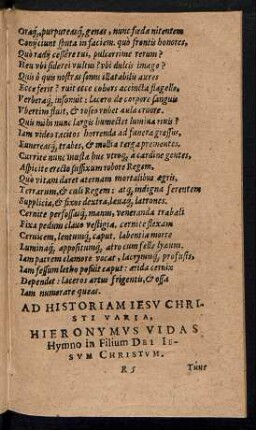 Oraq́;, purpureasq́;, genas, nunc fœda nitentem
Conijciunt sputa in faciem. quò frontis honores,
Quò radij cessêre tui, pulcerrime rerum?
Heu vbi siderei vultus? vbi dulcis imago?
Ecce ferit? ruit ecce cohors accincta flagellis,
Verberaq́; insonuit: lacero de corpore sanguis
Vbertim fluit, &
Quis mihi nunc largus humectet lumina riuis?
Iam video tacitos horrenda ad funera gressus,
trabes, & mollia terga prementes.
Currite nunc huc vtroq́;, a cardine gentes,
Aspicite erecto suffixum robore Regem,
Qui vitam daret æternam mortalibus ægris,
Terrarum, & cæli Regem: atq́; indigna ferentem
Supplicia, & fixos dextra, læuaq́;, latrones.
Cernite perfossasq́;, manus, veneranda trabali
Fixa pedum clauo vestigia, cernite flexam
Ceruicem, lentumq́;, caput, labentia morte
Luminaq́;, appositumq́;, atro cum felle lyæum.
Iam patrem clamore vocat, lacrymisq́;, profusis,
Iam fessum letho posuit caput: arida ceruix
Dependet: laceros artus frigentis, & ossa
Iam numerare queas.
AD HISTORIAM IESV CHRI-
STI VARIA,
HIERONYMVS VIDAS
Hymno in Filium DEI IE-
SVM CHRISTVM.
R5 Túne